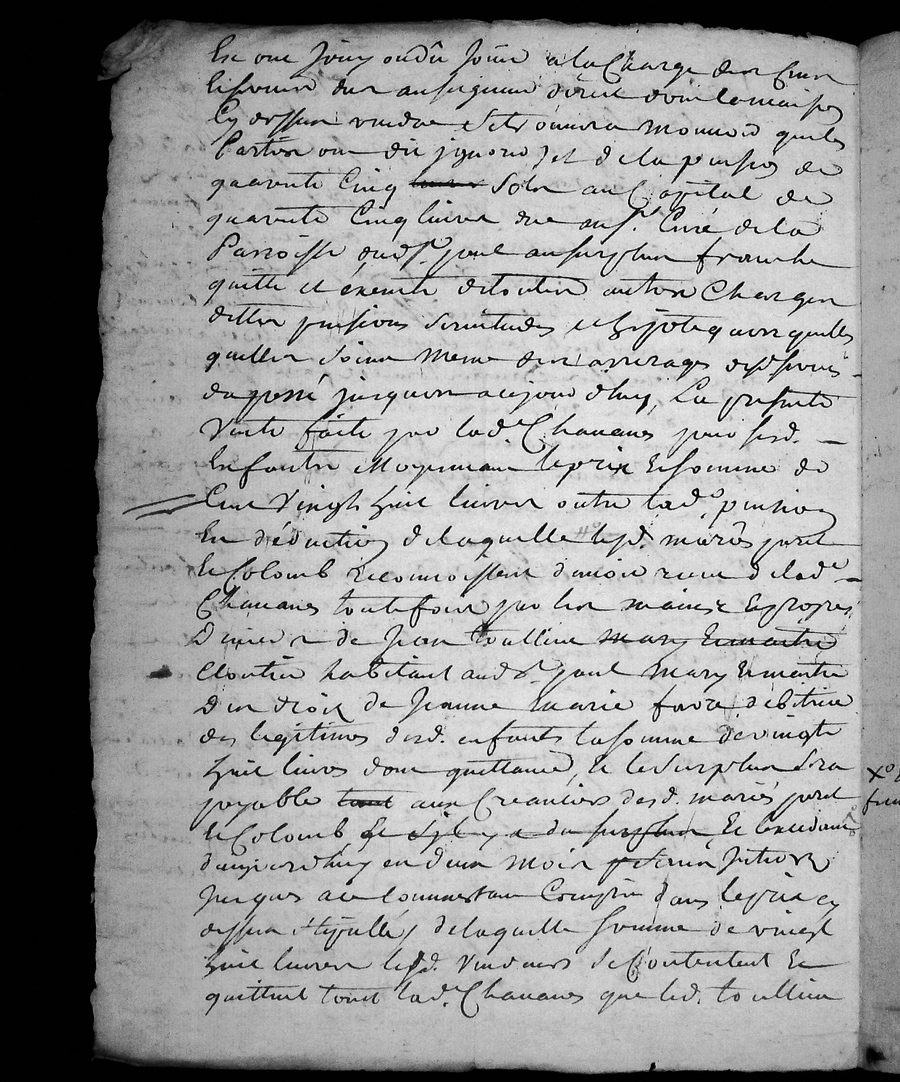 En ont jouy ou dû jouir a la Charge des Cens
Et servis dus au seigneur direct dont la maison
Cy dessus vendue se trouvera mouvoir que les
Parties ont dit ignorer, et de la pension de
quarante Cinq sols au Capital de
quarante Cinq livres due au sr. Curé de la
Parroisse dud. st. paul au surplus franche
quitte et exempte de toutes autres Charges
dettes pensions servitudes et hypoteques quelles
quelles soient meme des arrerages desd. servis
du passé jusques aujourdhuy, La presente
Vente faite par lad.e Chavanes pour sesd.
Enfants Moyennant le prix Et somme de
Cent Vingt huit livres outre lad.e pension
En déduction de laquelle lesd. mariés
Et Colomb reconnoissent d'avoir reçu de lad.e
Chavanes toutefois par les mains Et propres
Deniers de Jean toulieu
Cloutier habitant aud. st. paul Mary Et maitre
Des droits de Jeanne Marie favre débitrice
des legitimes desd. enfants la somme de vingt
huit livres dont quittance, et le surplus sera
payable aux Creanciers desd. mariés
Et Colomb Et
d'aujourdhuy en deux mois
jusques a ce
dessus stipullé, de laquelle somme de vingt
huit livres lesd. vendeurs se Contentent Et
quittent tant lad.e Chavanes que led. toulieu